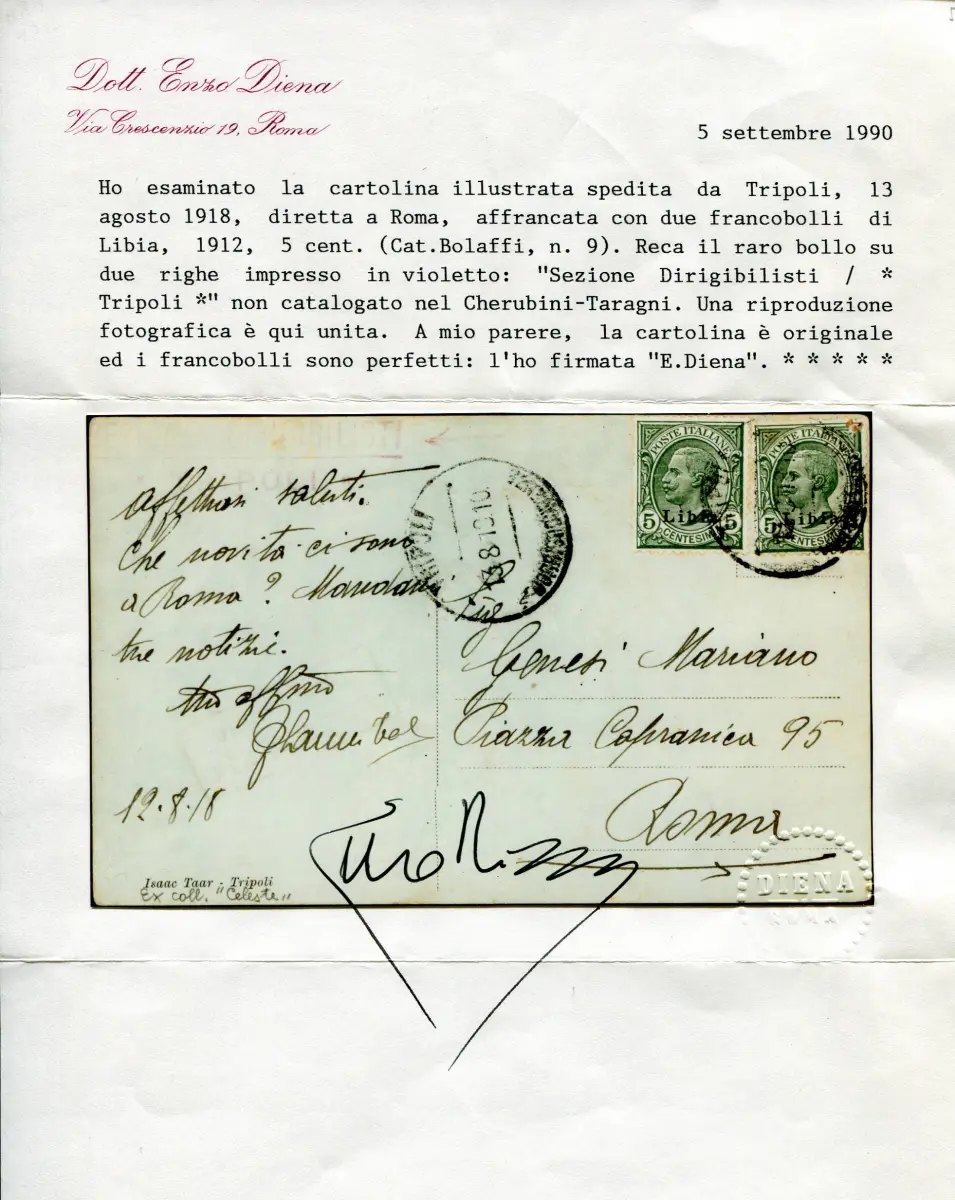 Dott. Enzo Diena
Via Crescenzio 19, Roma
5 settembre 1990
Ho esaminato la cartolina illustrata spedita da Tripoli, 13
agosto 1918, diretta a Roma, affrancata con due francobolli di
Libia, 1912, 5 cent. (Cat.Bolaffi, n. 9). Reca il raro bollo su
due righe impresso in violetto: "Sezione Dirigibilisti / *
Tripoli *" non catalogato nel Cherubini-Taragni. Una riproduzione
fotografica è qui unita. A mio parere, la cartolina è originale
ed i francobolli sono perfetti: l'ho firmata "E.Diena". * * * * *
POSTE ITALIANE
Libia
5 5
CENTESIMI
POSTE ITALIANE
Libia
5
CENTESIMI
TRIPOLI
13.8.18.10.
Affettuosi saluti.
Che novità ci sono
a Roma? Mandami
tue notizie.
tuo affmo
12.8.18
Sig
Genesi Mariano
Piazza Capranica 95
Roma
Isaac Taar - Tripoli
Ex coll. "Celeste"
DIENA
ROMA